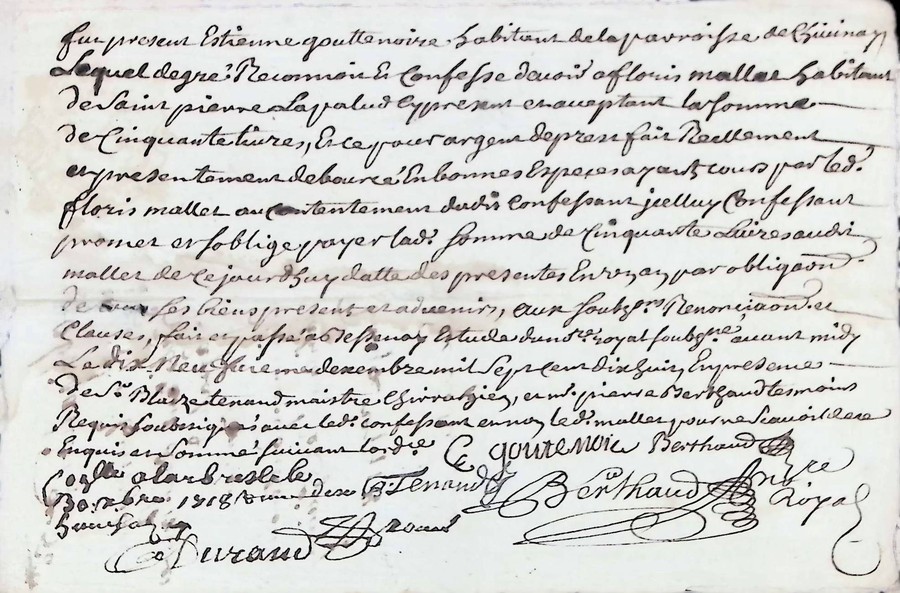 fut present Estienne gouttenoire habitant de la parroisse de Chivinay
Lequel de gré Reconnoit Et Confesse devoir a floris mallet habitant
de Saint pierre Lapalud Cy present et acceptant la Somme
de Cinquante livres, Et ce pour argent de prest fait Reellement
et presentement debourcé En bonnes Espeçes ayant Cours par led.
floris mallet au contentement dudit Confessant jcelluy Confessant
promet et soblige payer lad. somme de Cinquante Livres audit
mallet de Ce jourdhuy datte des presentes En un an par obligaon.
de tous ses biens present et advenir, aux soubzons Renonciaons. et
Clauses, fait et passé a Bessenay Estude du nore. royal soubzné avant midy
Le dix Neufvieme dexembre mil Sept Cent dix huit, En presence
de Sr. Blaize tenand maistre Chirurgien, et me. pierre Berthaud tesmoins
Requis soussignés avec led. confessant et non led. mallet pour ne scavoir de ce
Enquis et Sommé suivant lordce.
E goutenoire Berthaud
Collé a larbresle le
Xbre 1718
B Tenand
Berthaud nre
Royal
Durand